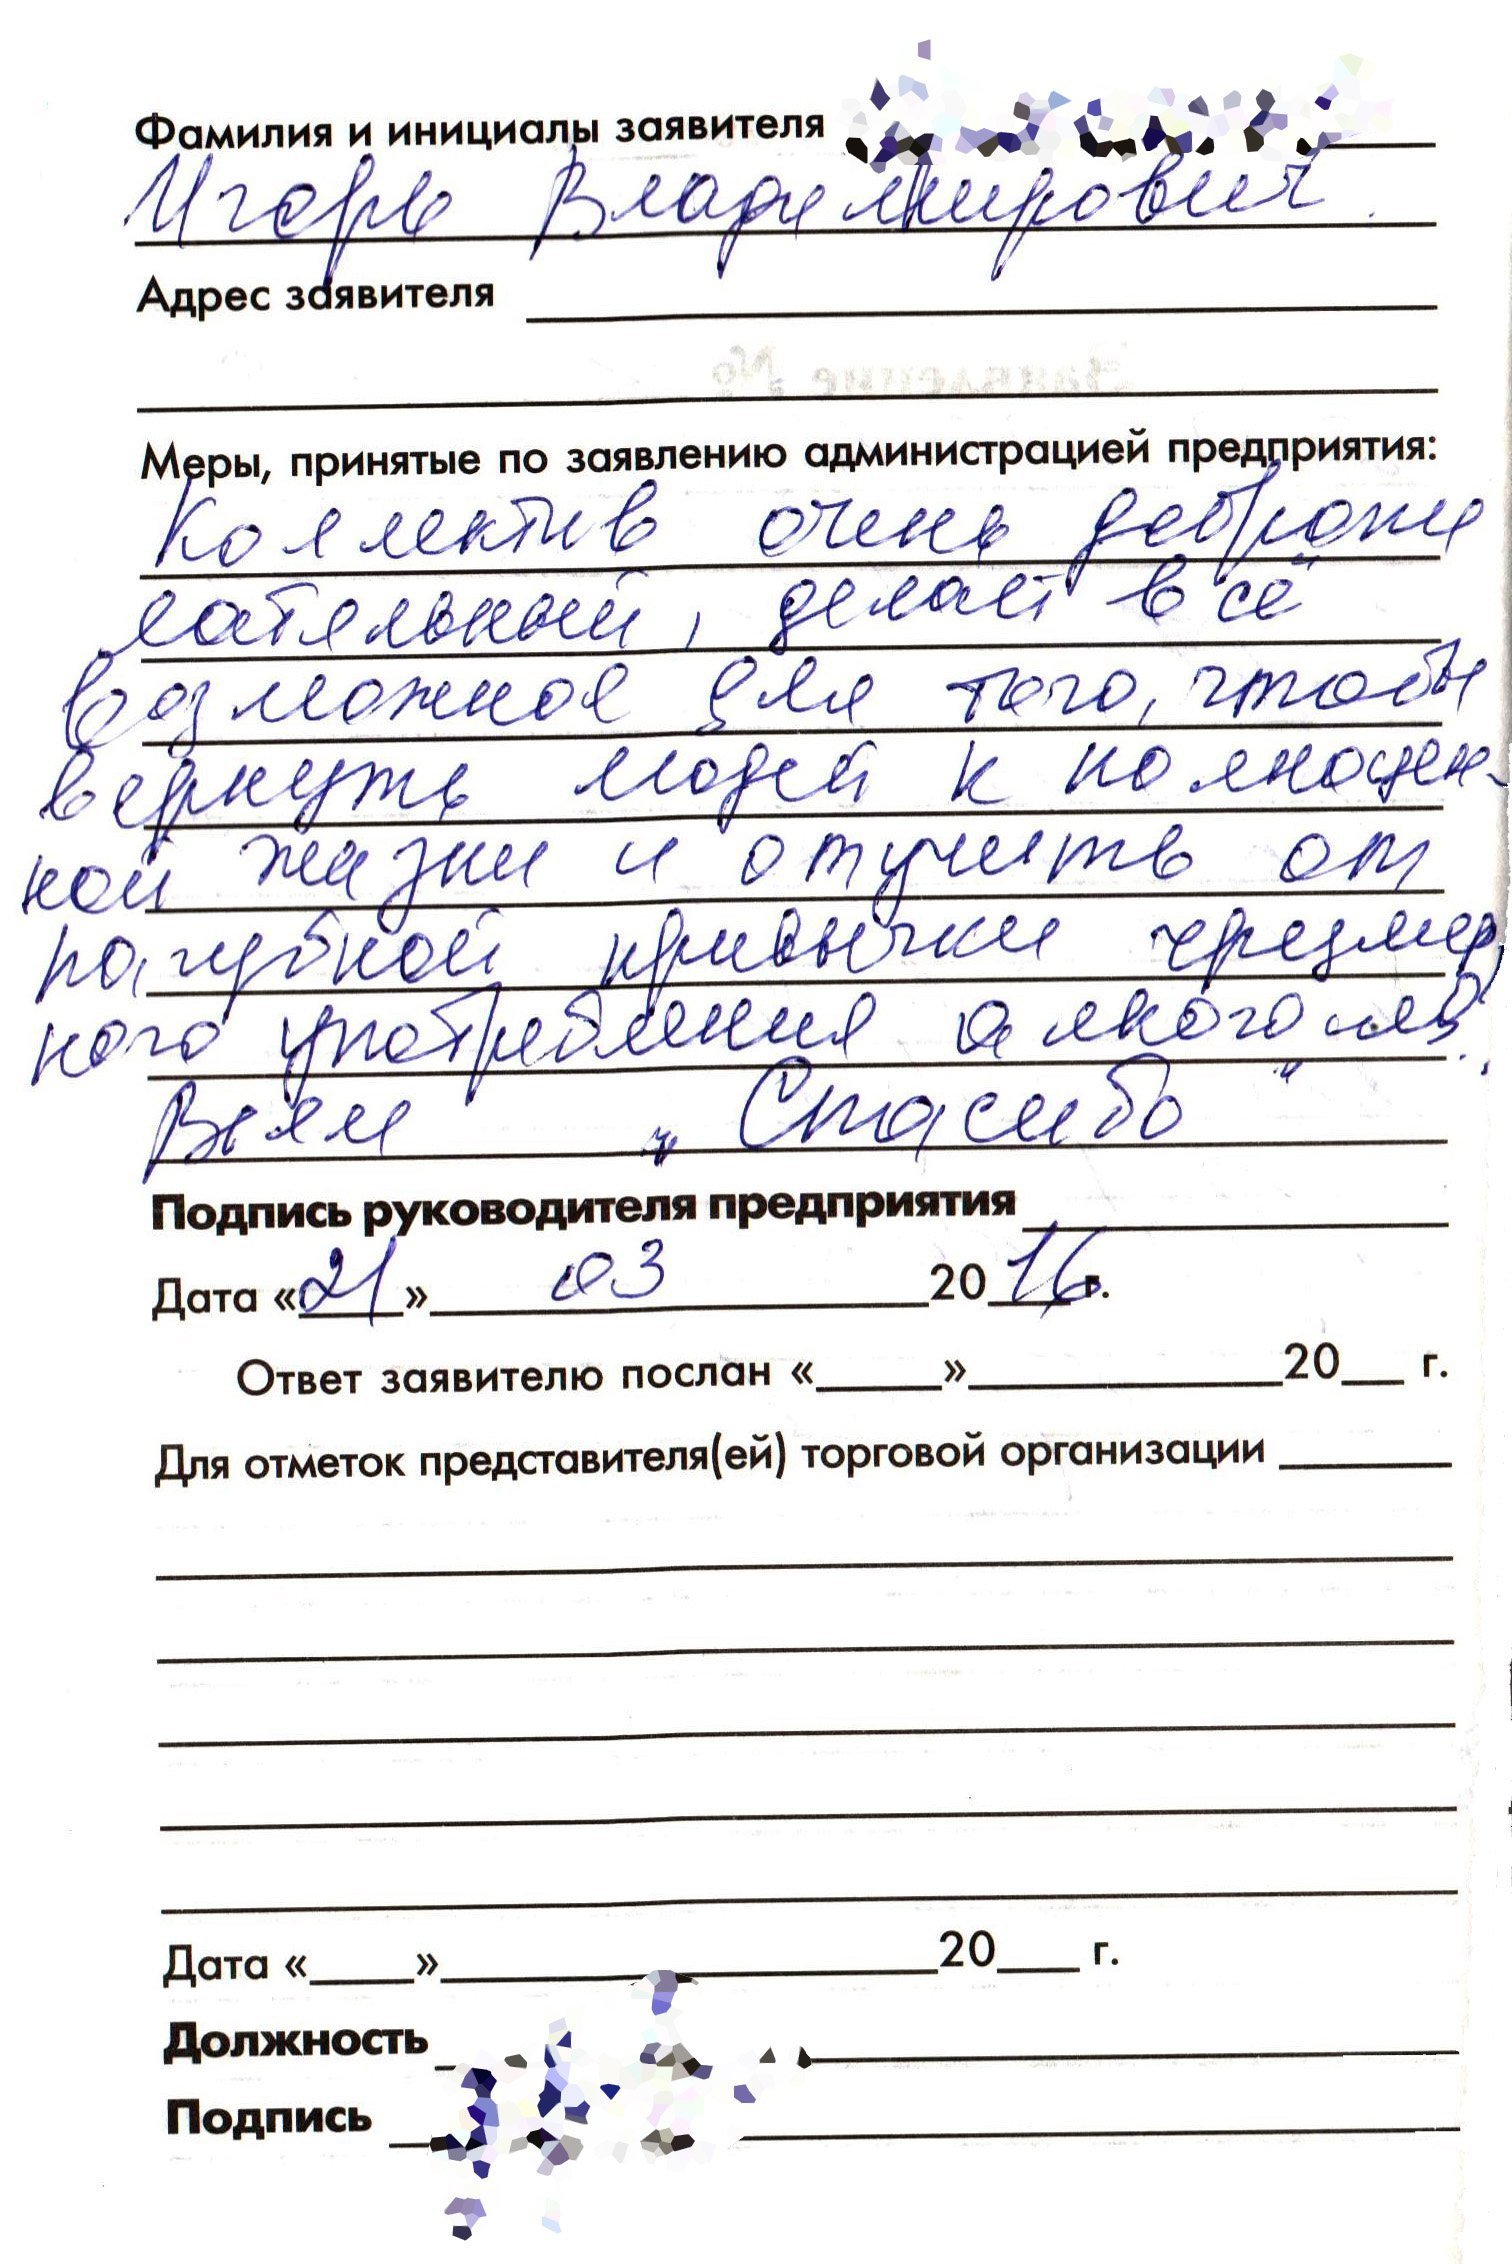 Фамилия и инициалы заявителя
Игорь Владимирович
Адрес заявителя
Меры, принятые по заявлению администрацией предприятия:
Коллектив очень доброже
лательный, делает всё
возможное для того, чтобы
вернуть людей к полноцен-
ной жизни и отучить от
пагубной привычки чрезмер
ного употребления алкоголя.
Всем „Спасибо"
Подпись руководителя предприятия
Дата «21» 03 2016 г.
Ответ заявителю послан « » 20 г.
Для отметок представителя(ей) торговой организации
Дата « » 20 г.
Должность
Подпись